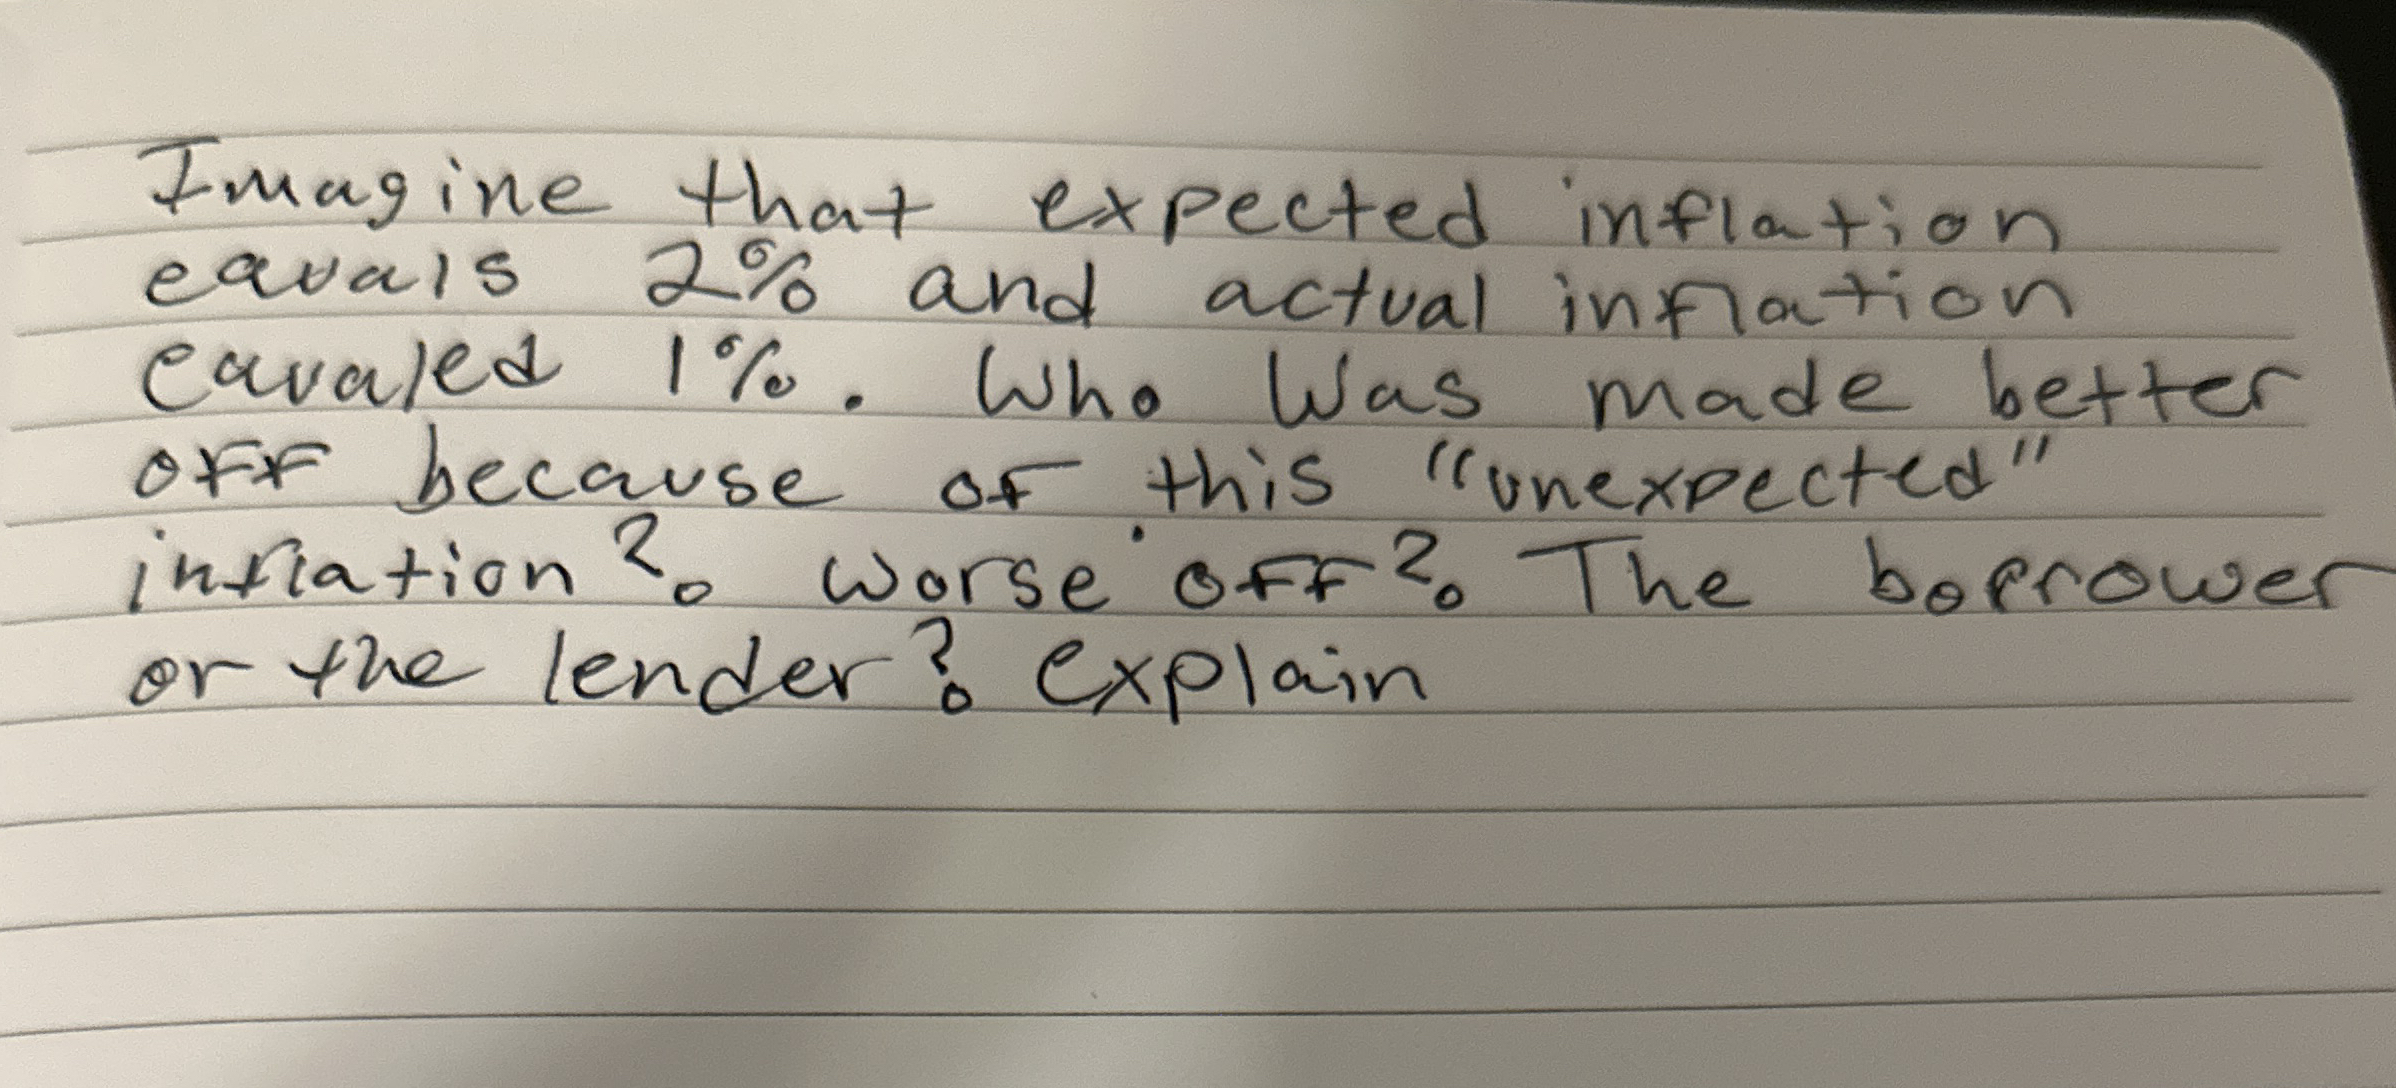 Imagine that expected inflation
equals 2% and actual inflation
equaled 1%. Who was made better
off because of this "unexpected"
inflation? Worse off? The borrower
or the lender? explain